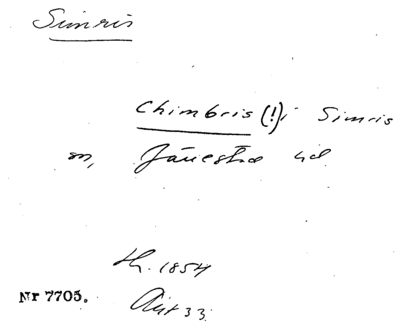 Simris
Chimbris (!) i Simris
sn, Järrestad hd
th. 1854
Nr 7705.